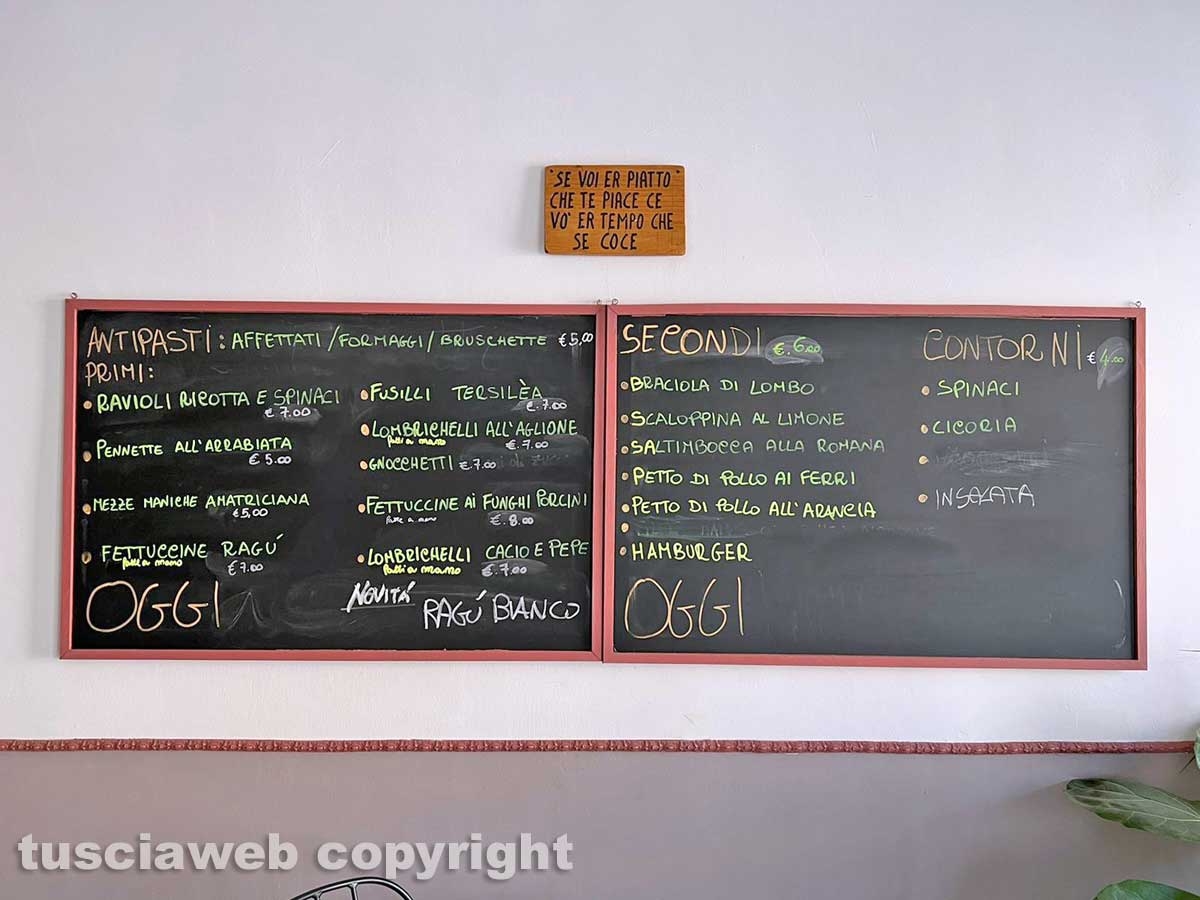 "SE VOI ER PIATTO"
CHE TE PIACE CE
VO' ER TEMPO CHE
SE COCE
ANTIPASTI: AFFETTATI/FORMAGGI/BRUSCHETTE €5,00
PRIMI:
RAVIOLI RICOTTA E SPINACI
€ 7.00
PENNETTE ALL'ARRABIATA
€ 5.00
MEZZE MANICHE AMATRICIANA
€5,00
FETTUCCINE RAGÚ
fatte a mano
€7.00
OGGI
FUSILLI TERSILÈA
€.7.00
LOMBRICHELLI ALL'AGLIONE
fatti a mano
€.7.00
GNOCCHETTI €.7.00
FETTUCCINE AI FUNGHI PORCINI
fatte a mano
€. 8.00
LOMBRICHELLI CACIO E PEPE
fatti a mano
€.7.00
NOVITÁ
RAGÚ BIANCO
SECONDI €.6,00
BRACIOLA DI LOMBO
SCALOPPINA AL LIMONE
SALTIMBOCCA ALLA ROMANA
PETTO DI POLLO AI FERRI
PETTO DI POLLO ALL'ARANCIA
HAMBURGER
OGGI
CONTORNI € 4.00
SPINACI
CICORIA
INSALATA
tusciaweb copyright